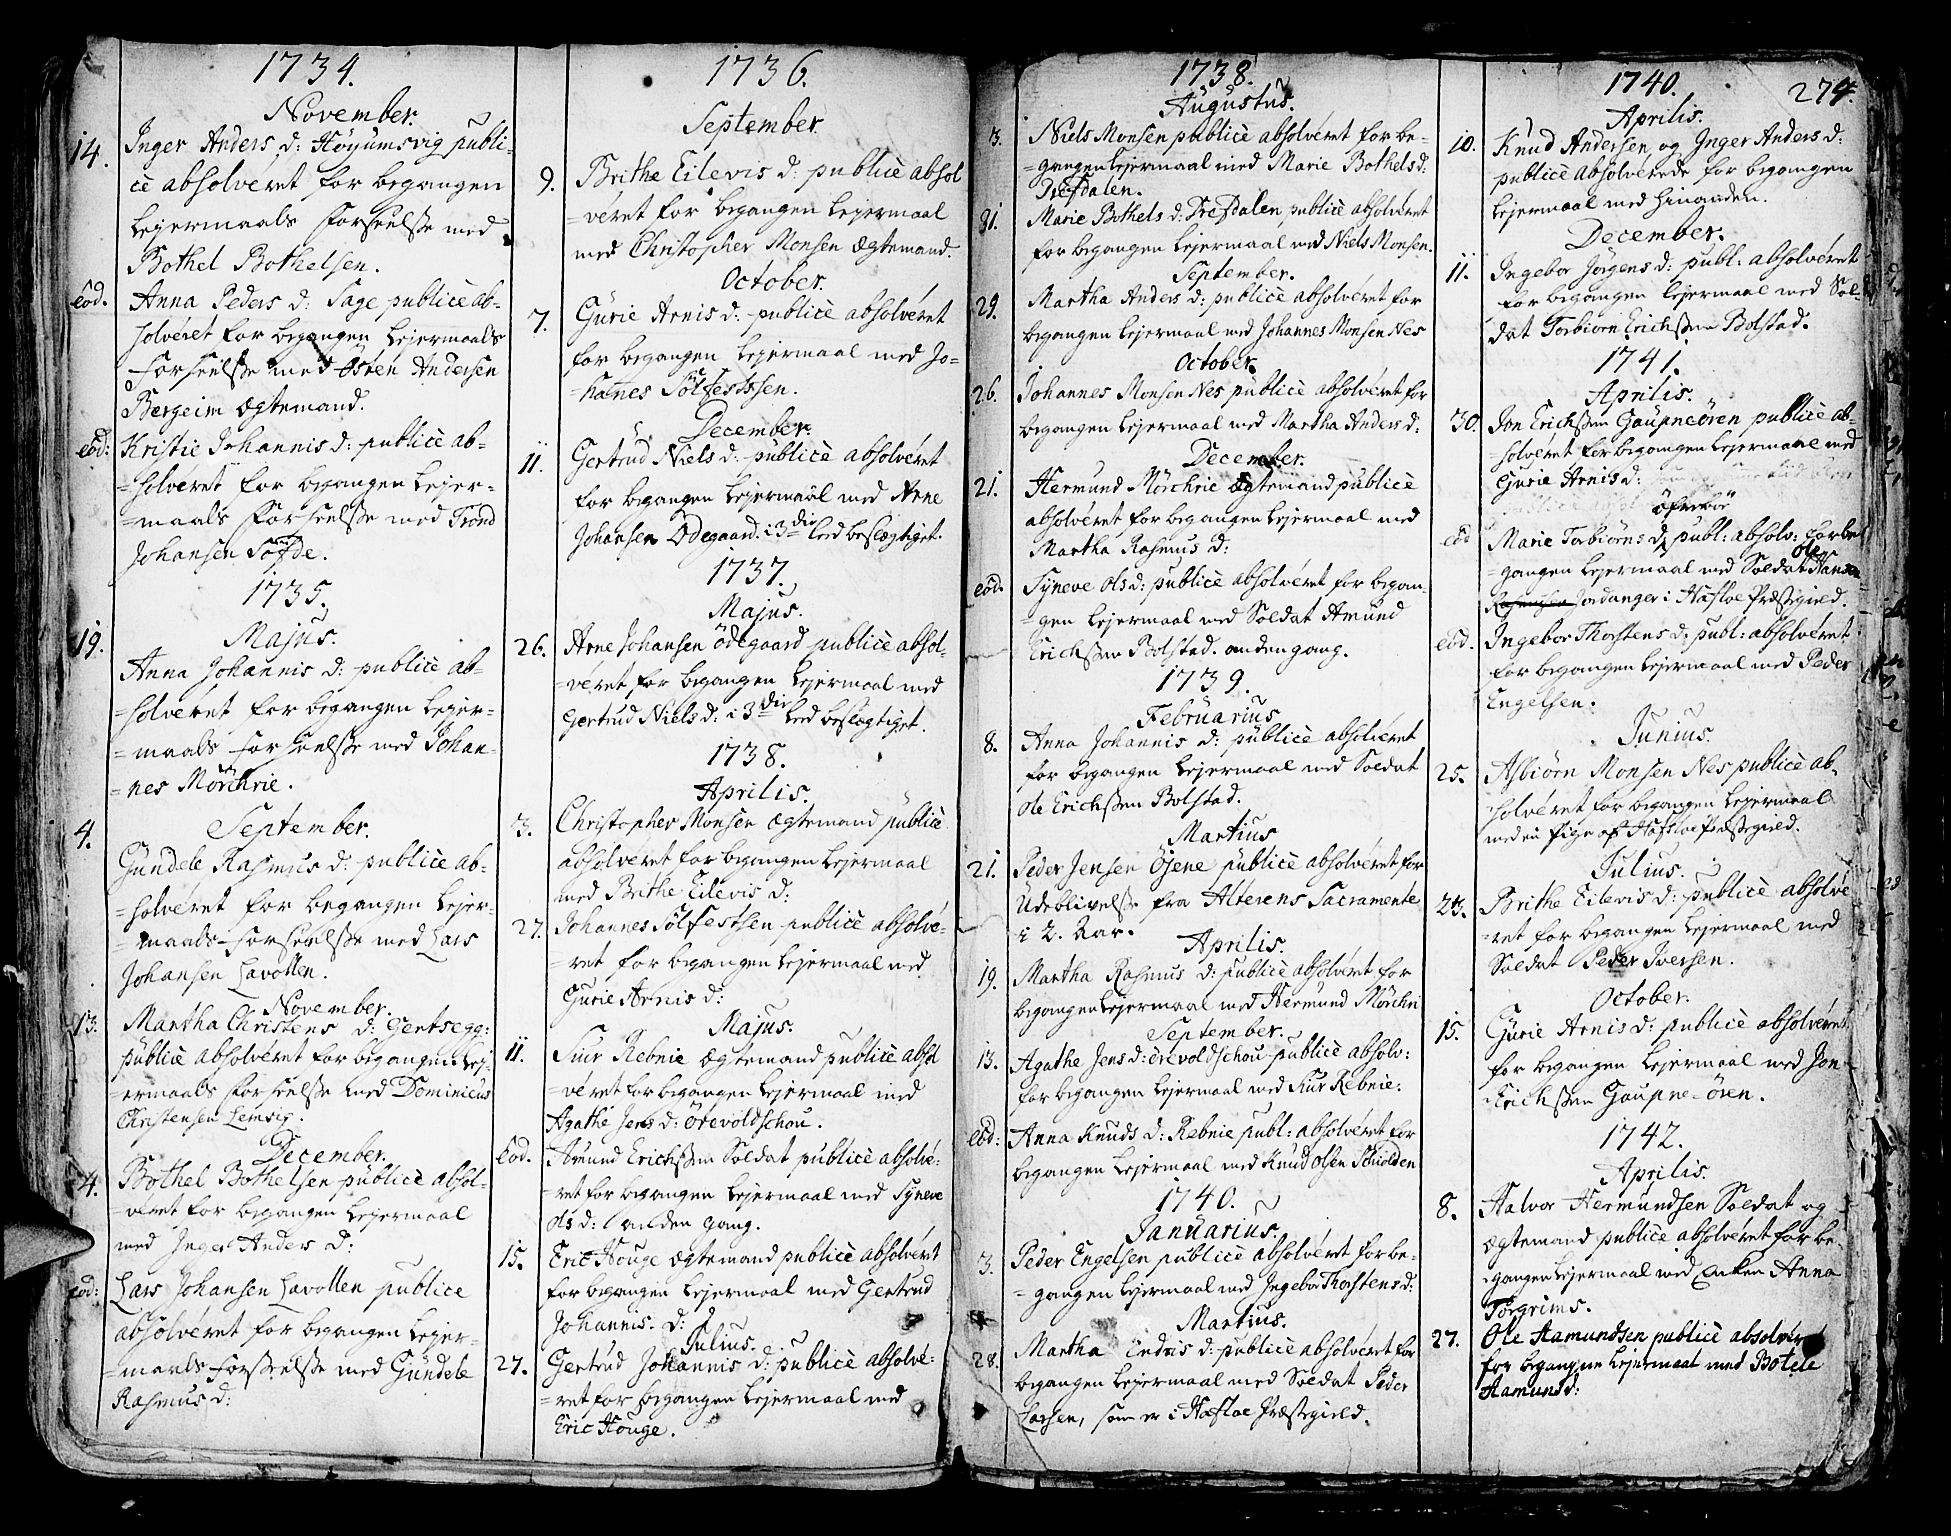 1734.
November.
14. Inger Anders d: Höyumsvig publi-
cè absolveret for begangen
Lejermaals forseelse med
Bothel Bothelsen.
eod. Anna Peders d: Sage publicè ab-
solveret for begangen Lejermaals
forseelse med Östen Andersen
Bergeim Ægtemand.
eod: Kristie Johannis d: publicè ab-
=solveret for begangen Lejer-
=maals forseelse med Trond
Johansen Töfde.
1735.
Majus.
19. Anna Johannis d: publicè ab-
=solveret for begangen Lejer-
=maals forseelse med Johan-
=nes Mörchrie.
September.
4. Gundele Rasmus d: publicè ab-
=solveret for begangen Lejer-
=maals forseelse med Lars
Johansen Lavollen.
November.
13. Martha Christens d: Gentsegg:
publicè absolveret for begangen Lej-
=ermaals forseelse med Dominicus
Christensen Lemvig.
December.
4. Bothel Bothelsen publicè absol-
=veret for begangen Lejermaal
med Inger Anders d:
eod: Lars Johansen Lavollen publicè
absolveret for begangen Lejer-
=maals forseelse med Gundele
Rasmus d:
1736.
September.
9. Brithe Eilevis d: publicè absol
=veret for begangen Lejermaal
med Christopher Monsen Ægtemand.
October.
7. Gurie Arnis d: publicè absolveret
for begangen Lejermaal med Jo-
=hannes Sölfestssen.
December.
11. Gertrud Niels d: publicè absolveret
for begangen Lejermaal med Arne
Johansen Ödegaard. i 3die Led beslægtiget.
1737.
Majus.
26. Arne Johansen Ödegaard publicè absol-
=veret for begangen Lejermaal med
Gertrud Niels d: i 3die Led beslægtiget.
1738.
Aprilis.
3. Christopher Monsen Ægtemand publicè
absolveret for begangen Lejermaal
med Brithe Eilevis d:
27. Johannes Sölfestsen publicè absolve-
=ret for begangen Lejermaal med
Gurie Arnis d:
Majus.
11. Siur Rebnie Ægtemand publicè absol
=veret for begangen Lejermaal med
Agathe Jens d: Örevoldschou.
eod. Amund Erichssen Soldat publicè absolve-
=ret for begangen Lejermaal med Syneve
Ols d: anden gang.
15. Eric Houge Ægtemand publicè absolveret
for begangen Lejermaal med Gertrud
Johannis. d:
Julius.
27. Gertrud Johannis d: publicè absolve-
=ret for begangen Lejermaal med
Eric Houge.
1738.
Augustus.
3. Niels Monsen publicè absolveret for be-
=gangen Lejermaal med Marie Bothels d:
Drefdalen.
31. Marie Bothels d: Drefdalen publicè absolveret
for begangen Lejermaal med Niels Monsen.
September.
29. Martha Anders d: publicè absolveret for
begangen Lejermaal med Johannes Monsen Nes
October.
26. Johannes Monsen Nes publicè absolveret for
begangen Lejermaal med Martha Anders d:
December.
21. Hermund Mörchrie Ægtemand publicè
absolveret for begangen Lejermaal med
Martha Rasmus d:
eod. Syneve Ols d: publicè absolveret for began-
=gen Lejermaal med Soldat Amund
Erichssen Bolstad. anden gang.
1739.
Februarius
8. Anna Johannis d: publicè absolveret
for begangen Lejermaal med Soldat
Ole Erichssen Bolstad.
Martius
21. Peder Jensen Öjene publicè absolveret for
Udeblivelse fra Alterens Sacramente
i 2. Aar.
Aprilis.
19. Martha Rasmus d: publicè absolveret for
begangen Lejermaal med Hermund Mörchri
September.
13. Agathe Jens d: Örevoldschou publicè absolv:
for begangen Lejermaal med Siur Rebnie:
eod: Anna Knuds d: Rebnie publ: absolveret for
begangen Lejermaal med Knud Olsen Schiolden
1740.
Januarius.
3. Peder Engelsen publicè absolveret for be-
=gangen Lejermaal med Ingebor Thorstens d:
Martius.
28. Martha Endris d: publicè absolveret for
begangen Lejermaal med Soldat Peder
Larsen, som er i Hafloe Præstegield.
274.
1740.
Aprilis.
10. Knud Andersen og Inger Anders d:
publicè absolverede for begangen
Lejermaal med hinanden.
December.
11. Ingebor Jörgens d: publ: absolveret
for begangen Lejermaal med Sol-
dat Torbiorn Erichssen Bolstad.
1741.
Aprilis.
30. Jon Erichssen Gaupneören publicè ab-
=solveret for begangen Lejermaal med
Gurie Arnis d:
Öfrebö
eod Marie Torbiorns d: publ: absolv: for be
=gangen Lejermaal med Soldat Ole Hansen
Rasmussen Jordanger i Hafloe Præstegield.
eod. Ingebor Thorstens d: publ: absolveret
for begangen Lejermaal med Peder
Engelsen.
Junius.
25. Asbiörn Monsen Nes publicè ab-
=solveret for begangen Lejermaal
med en Pige af Hafsloe Præstegield.
Julius.
23. Brithe Eilevis d: publicè absolve
=ret for begangen Lejermaal med
Soldat Peder Iversen.
October.
15. Gurie Arnis d: publicè absolveret
for begangen Lejermaal med Jon
Erichssen Gaupne-Ören.
1742.
Aprilis.
8. Halvor Hermundsen Soldat og
Ægtemand publicè absolveret for be-
=gangen Lejermaal med Enken Anna
Torgrims.
27. Ole Aamundsen publicè absolveret
for begangen Lejermaal med Botele
Aamunsd: